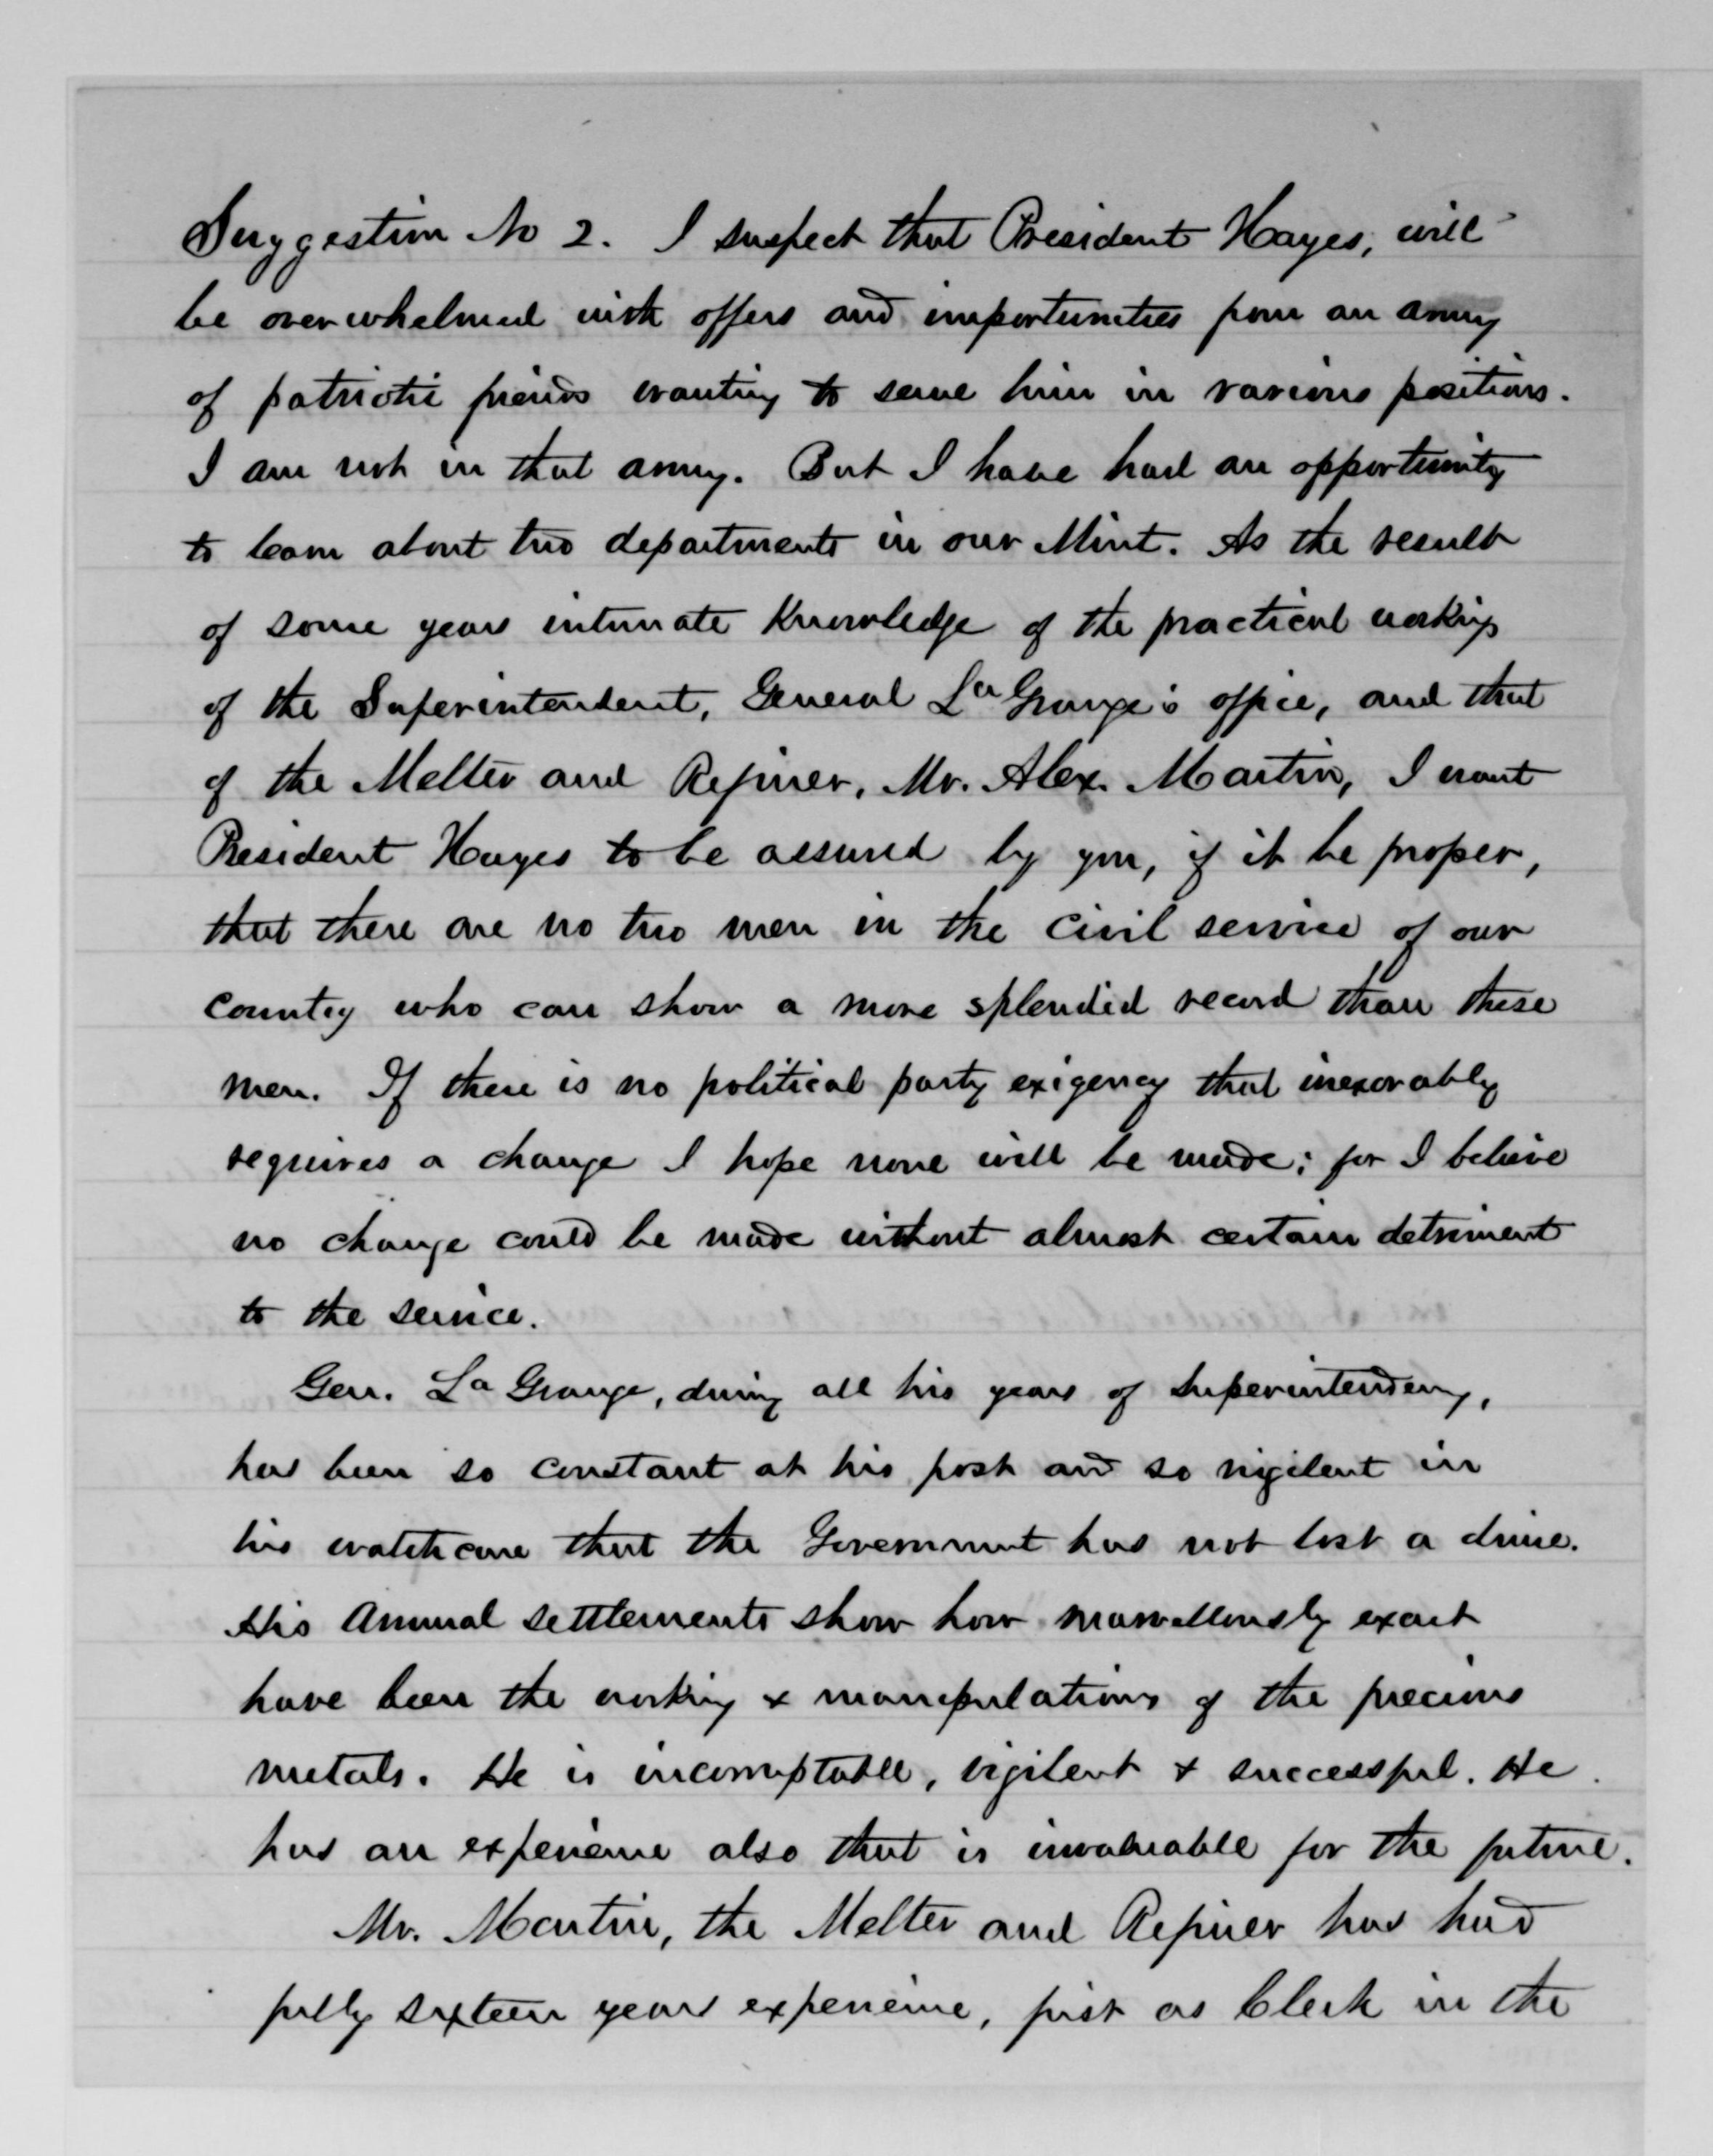 Suggestion No 2. I suspect that President Hayes, will
be overwhelmed with offers and importunities from an army
of patriotic friends wanting to serve him in various positions.
I am not in that army. But I have had an opportunity
to learn about two departments in our Mint. As the result
of some years intimate Knowledge of the practical workings
of the Superintendent, General La Grange's office, and that
of the Melter and Refiner, Mr. Alex. Martin, I want
President Hayes to be assured by you, if it be proper,
that there are no two men in the civil service of our
country who can show a more splendid record than these
men. If there is no political party exigency that inexorably
requires a change I hope none will be made; for I believe
no change could be made without almost certain detriment
to the service.
Gen. La Grange, during all his years of Superintendency,
has been so constant at his post and so vigilent in
his watchcare that the Government has not lost a dime.
His Annual settlements show how marvellously exact
have been the working & manipulations of the precious
metals. He is incorruptable, vigilent & successful. He
has an experience also that is invaluable for the future.
Mr. Martin, the Melter and Refiner has had
fully sixteen years experience, first as Clerk in the